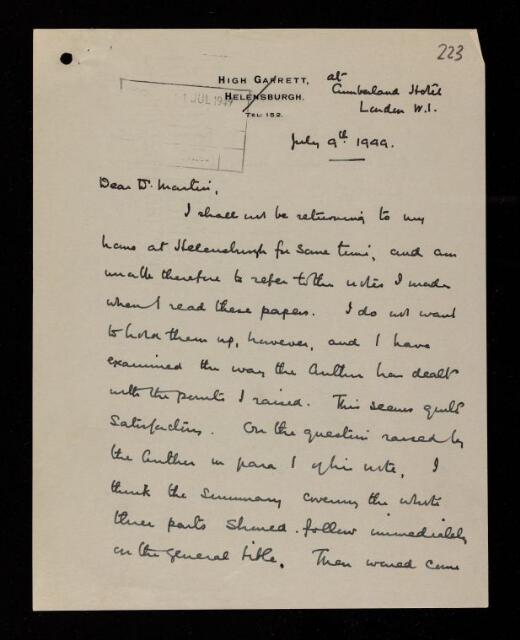 223
HIGH GARRETT,
HELENSBURGH.
TEL: 152.
at
Cumberland Hotel
London W.1.
JUL 1949
July 9th 1949.
Dear Dr. Martin,
I shall not be returning to my
home at Helensburgh for some time, and am
unable therefore to refer to the notes I made
when I read these papers. I do not want
to hold them up, however, and I have
examined the way the Author has dealt
with the points I raised. This seems quite
satisfactory. On the question raised by
the Author in para 1 of his note, I
think the Summary covering the whole
three parts should follow immediately
on the general title. Then would come